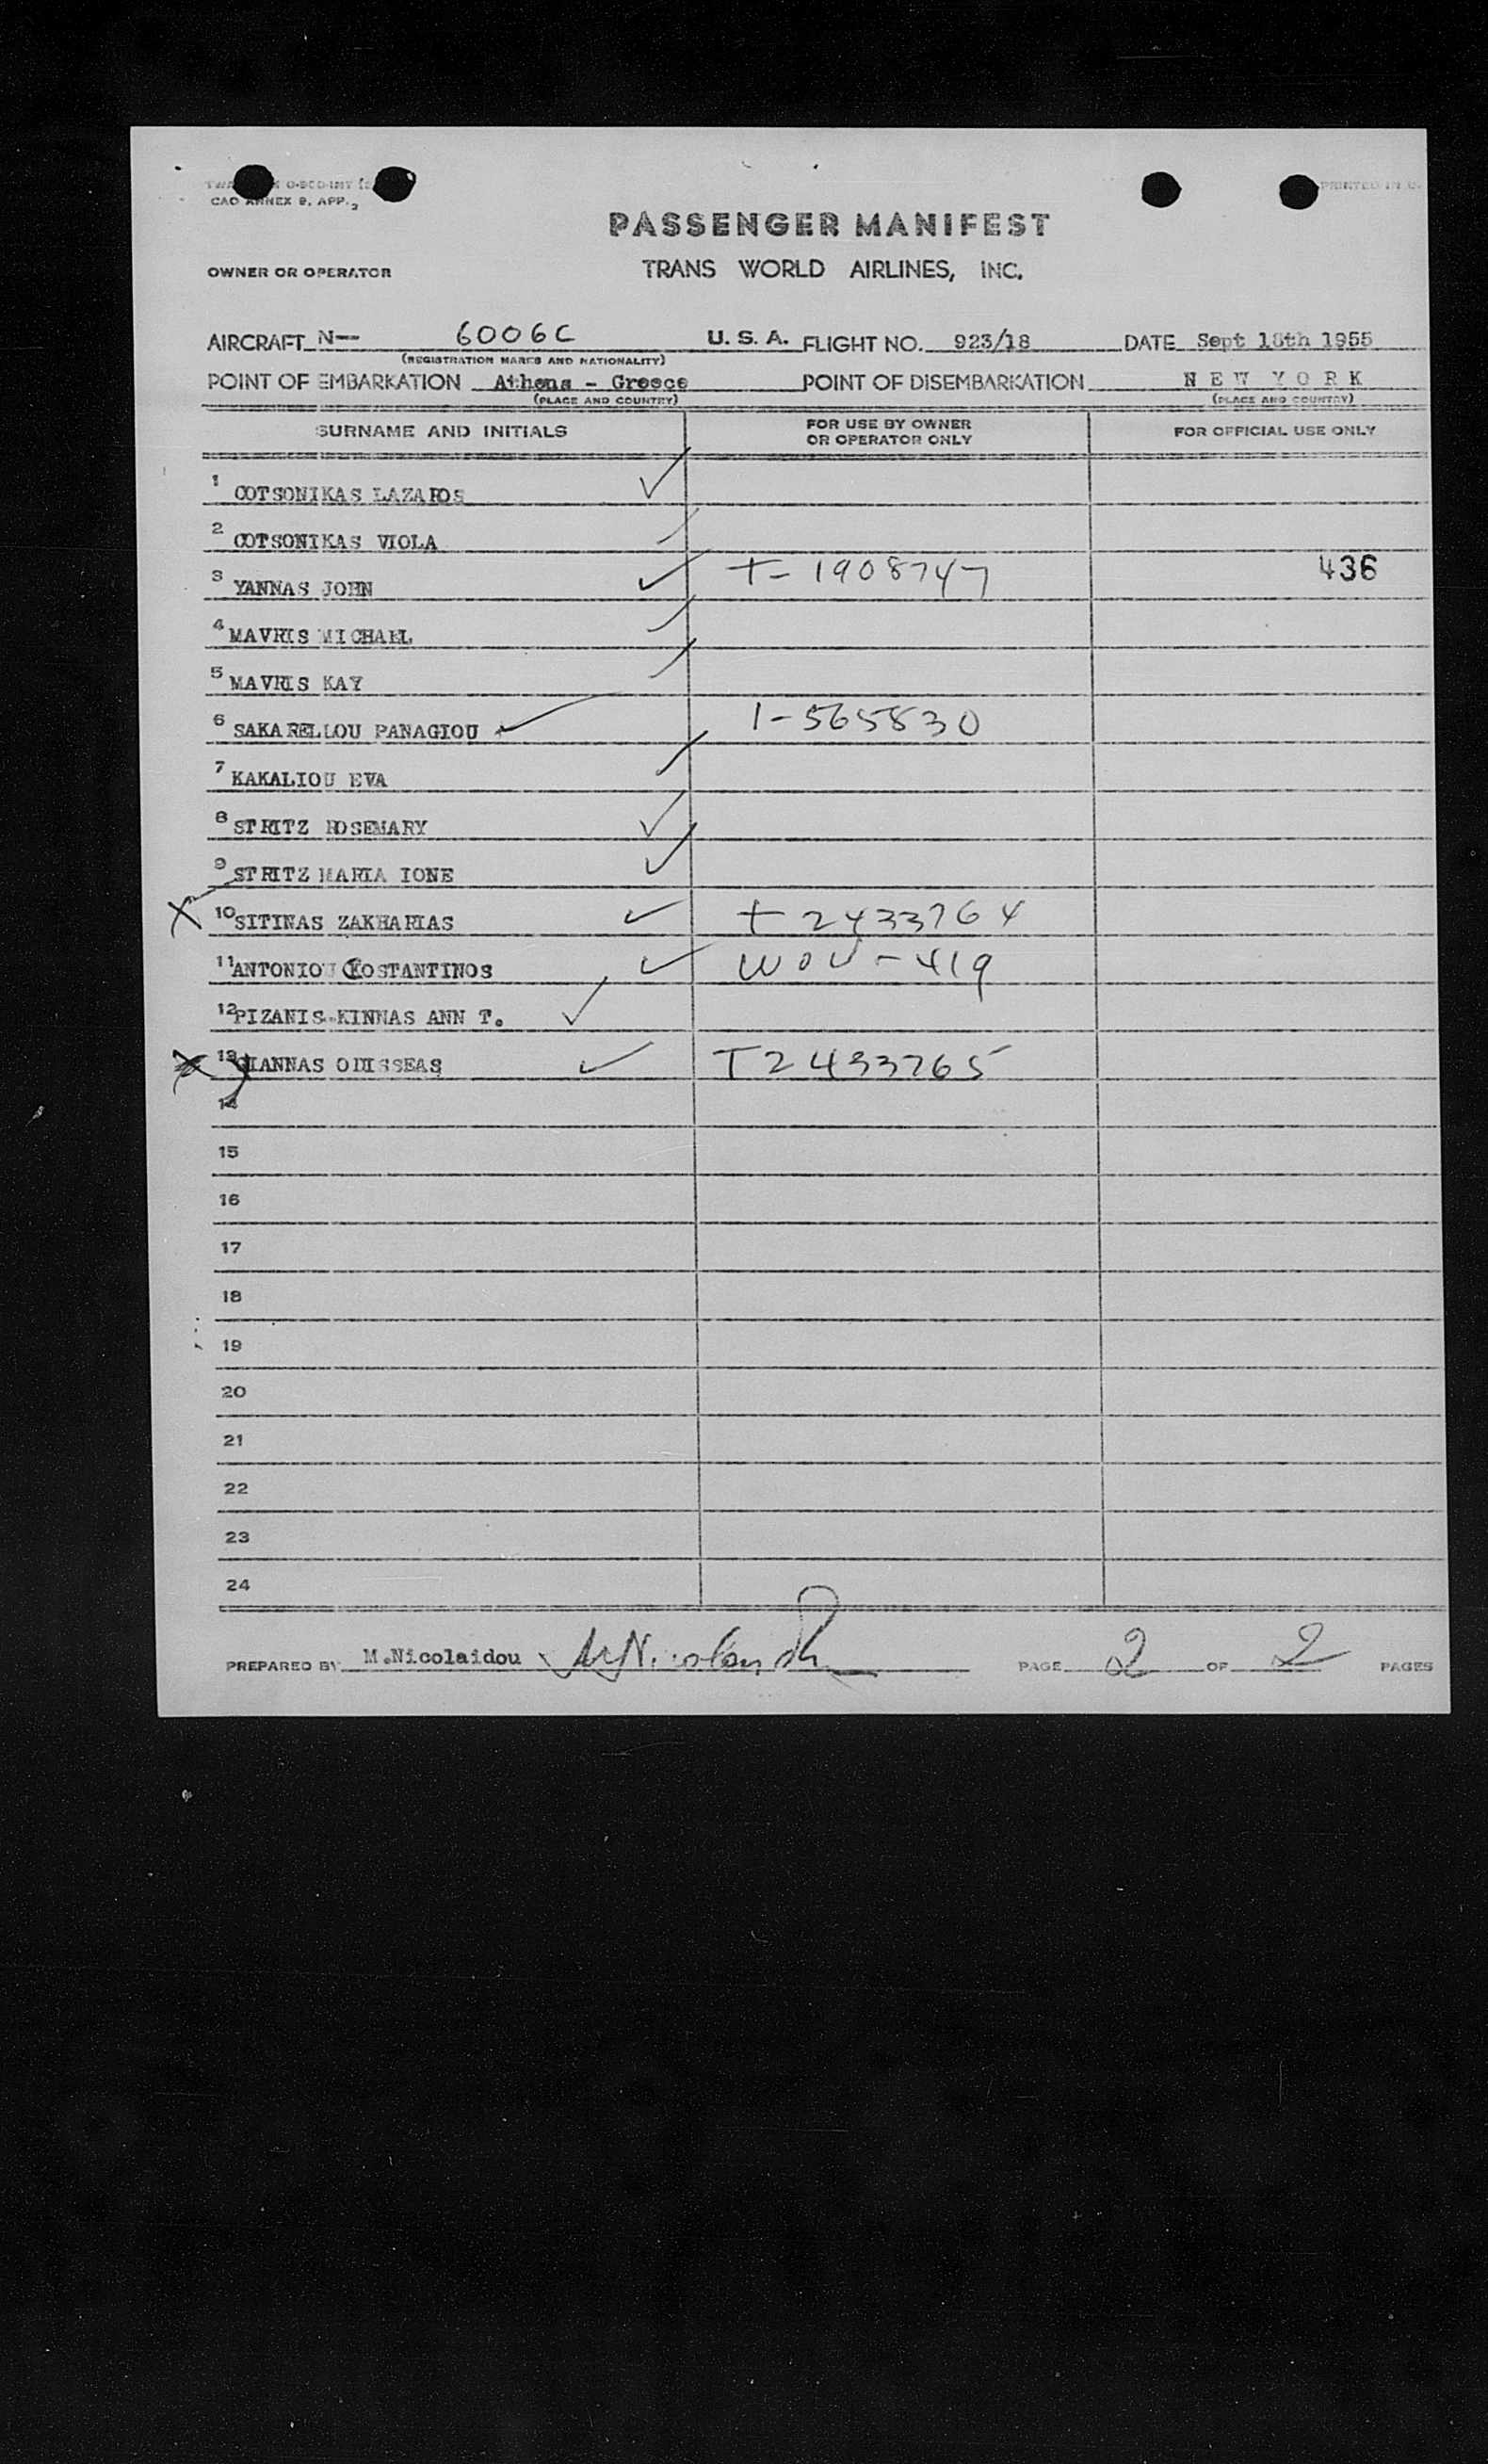 CAO ANNEX 9, APP. 2
PRINTED IN U.
PASSENGER MANIFEST
OWNER OR OPERATOR TRANS WORLD AIRLINES, INC.
AIRCRAFT N-- 6006C U. S. A. FLIGHT NO. 923/18 DATE Sept 18th 1955
(REGISTRATION MARKS AND NATIONALITY)
POINT OF EMBARKATION Athens - Greece POINT OF DISEMBARKATION N E W Y O R K
(PLACE AND COUNTRY) (PLACE AND COUNTRY)
SURNAME AND INITIALS FOR USE BY OWNER OR OPERATOR ONLY FOR OFFICIAL USE ONLY
1 COTSONIKAS LAZAROS
2 COTSONIKAS VIOLA
3 YANNAS JOHN T-1908747 436
4 MAVRIS MICHAEL
5 MAVRIS KAY
6 SAKARELLOU PANAGIOU 1-565830
7 KAKALIOU EVA
8 STRITZ ROSEMARY
9 STRITZ MARIA IONE
X 10 SITINAS ZAKHARIAS T2433764
11 ANTONIOU COSTANTINOS WOU-419
12 PIZANIS-KINNAS ANN T.
X 13 GIANNAS ODISSEAS T2433765
14
15
16
17
18
19
20
21
22
23
24
PREPARED BY M.Nicolaidou PAGE 2 OF 2 PAGES